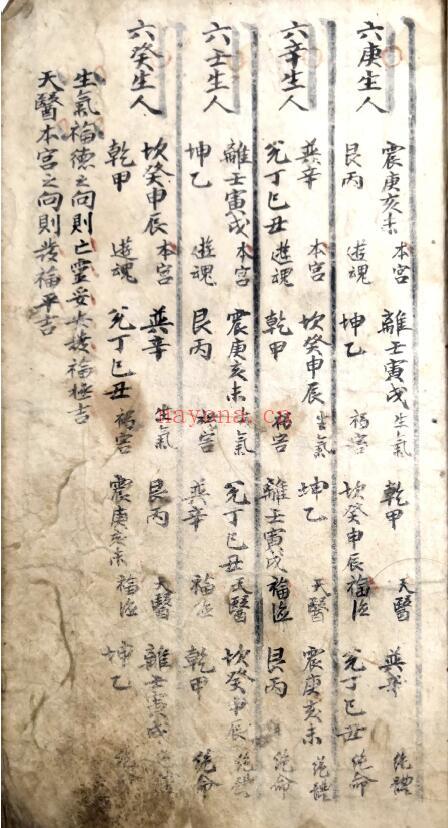 六庚生人
震庚亥未 本宮 離壬寅戌 生氣 乾甲 天醫 巽辛 絶體
艮丙 遊魂 坤乙 禍害 坎癸申辰 福德 兌丁巳丑 絶命
六辛生人
巽辛 本宮 坎癸申辰 生氣 坤乙 天醫 震庚亥未 絶體
兌丁巳丑 遊魂 乾甲 禍害 離壬寅戌 福德 艮丙 絶命
六壬生人
離壬寅戌 本宮 震庚亥未 生氣 兌丁巳丑 天醫 坎癸申辰 絶體
坤乙 遊魂 艮丙 禍害 巽辛 福德 乾甲 絶命
六癸生人
坎癸申辰 本宮 巽辛 生氣 艮丙 天醫 離壬寅戌
乾甲 遊魂 兌丁巳丑 禍害 震庚亥未 福德 坤乙 絶
生氣福德之向則亡靈妥大發福極吉
天醫本宮之向則發福平吉
nayona.cn